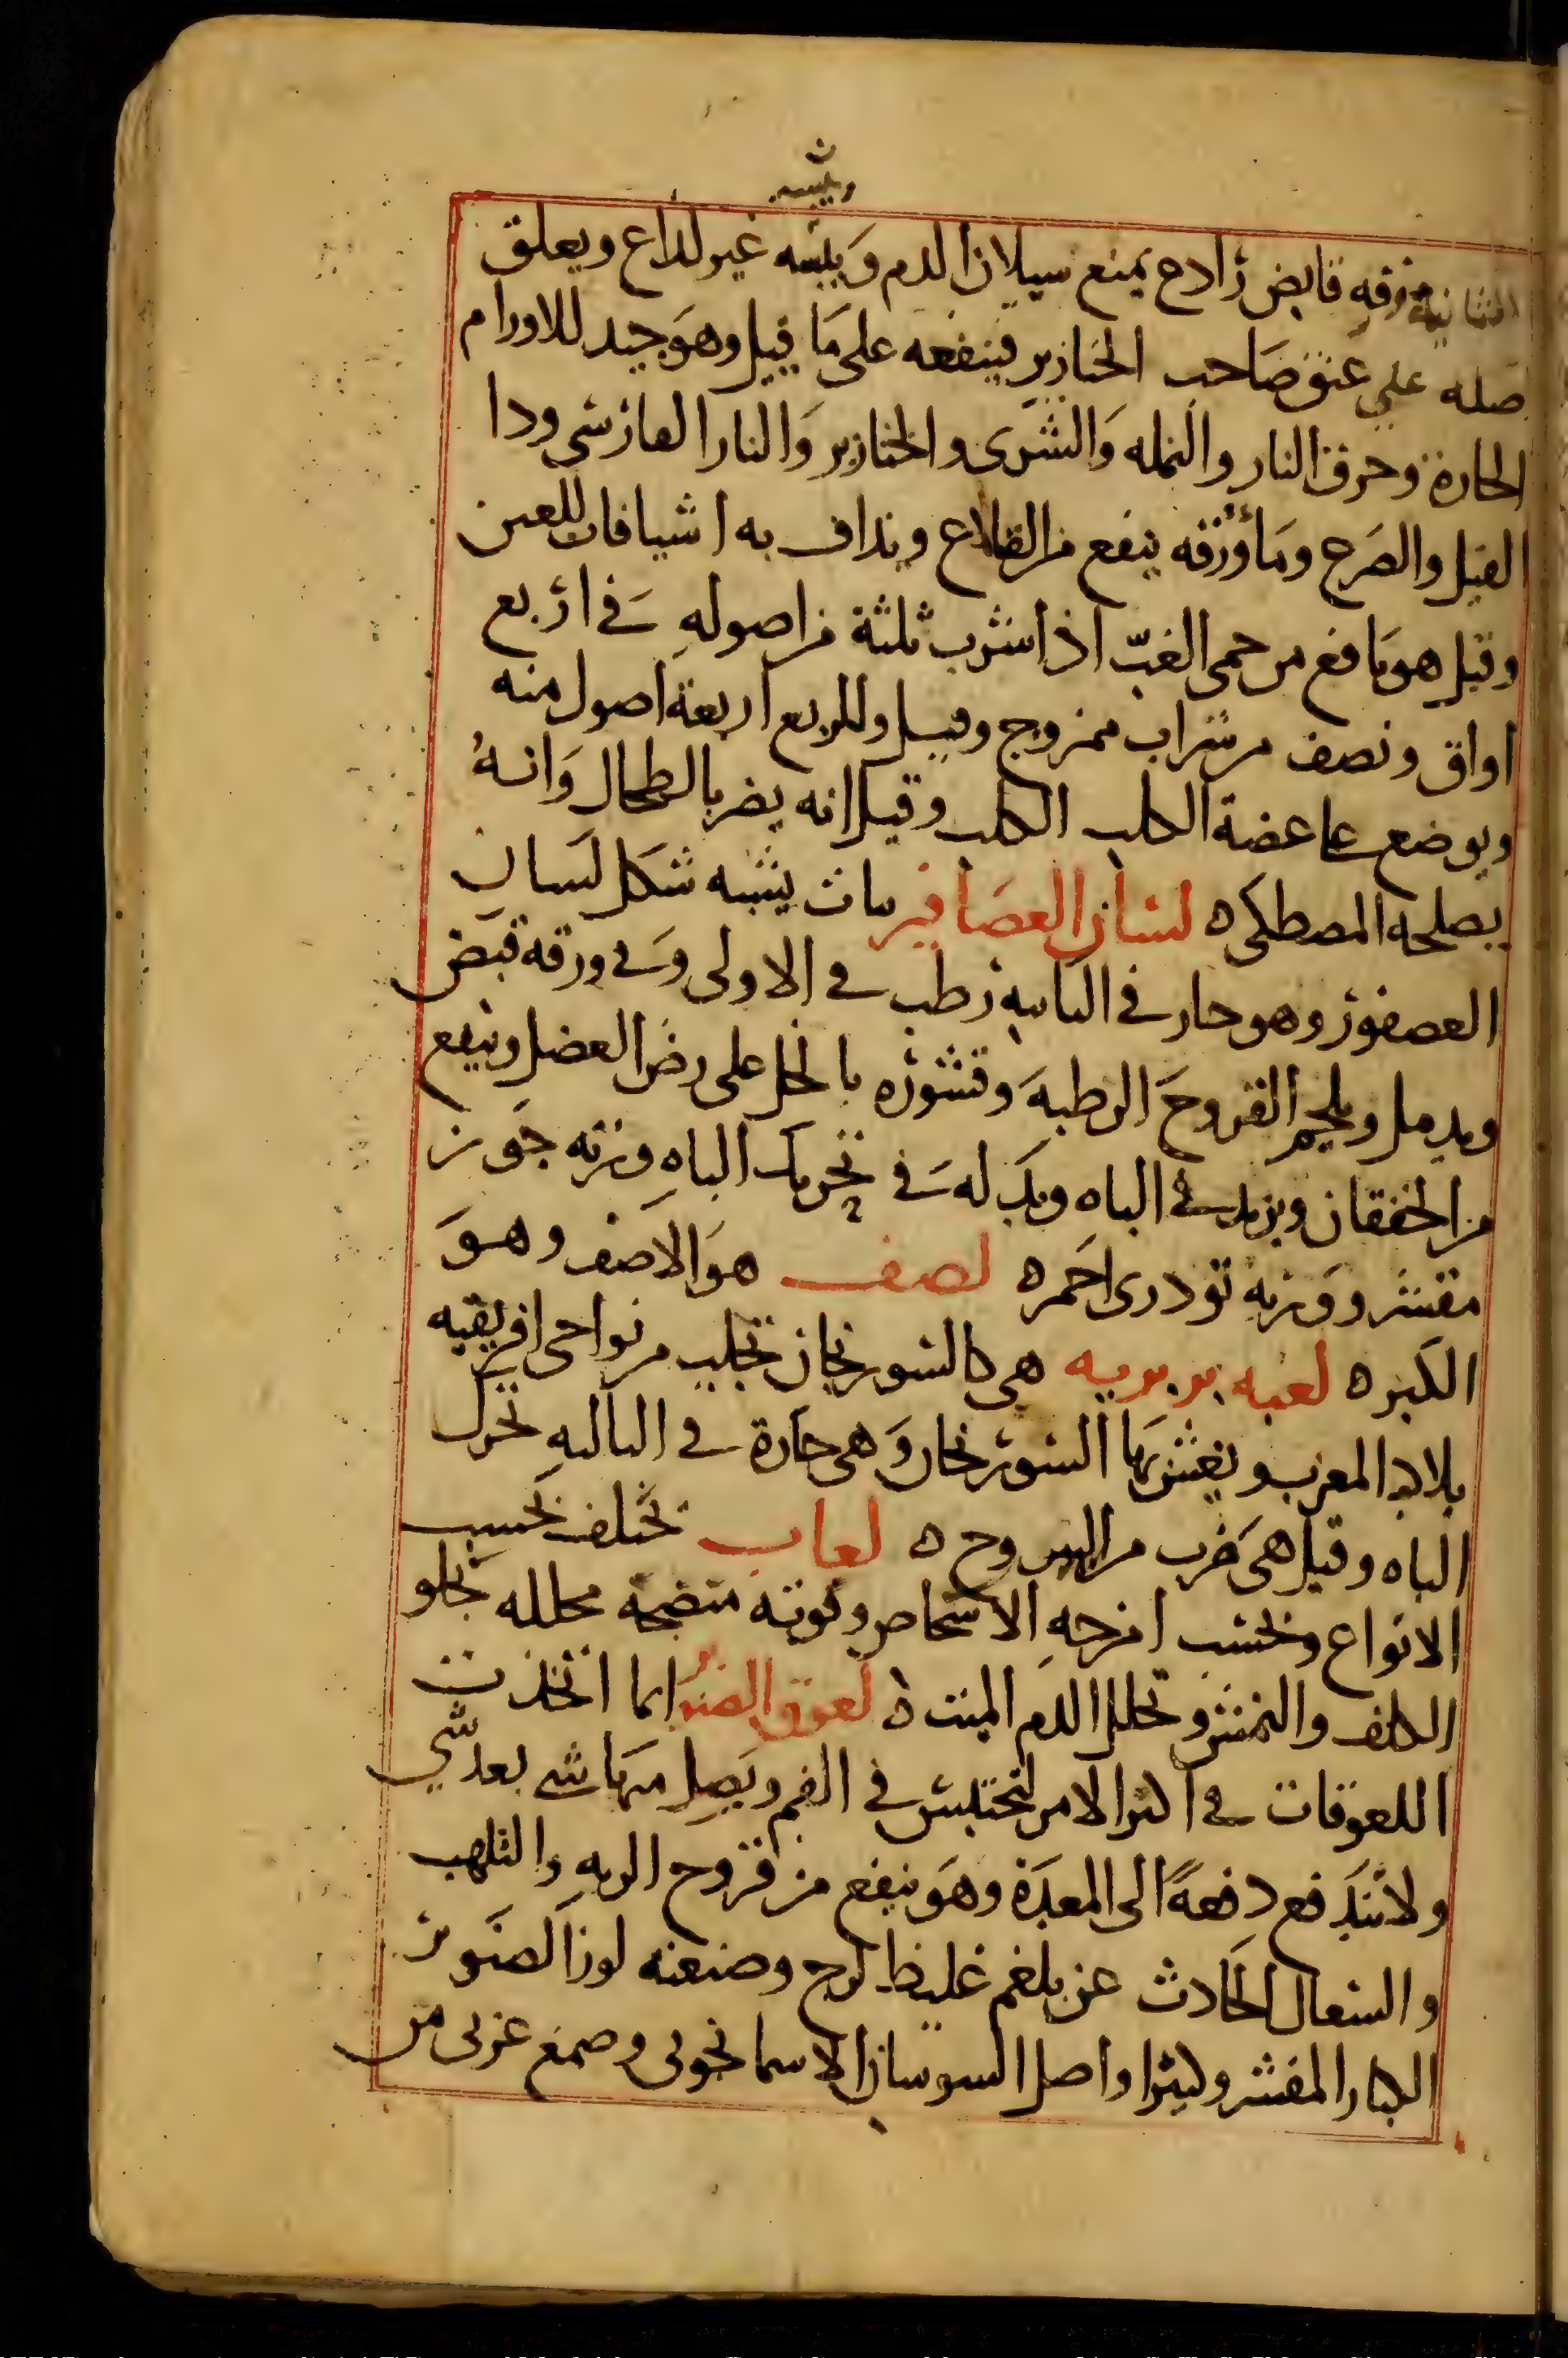 ويبسه
الثانية ورقه قابض رادع يمنع سيلان الدم ويبسه غير لذاع ويعلق
اصله على عنق صاحب الخنازير فينفعه على ما قيل وهو جيد للاورام
الحارة وحرق النار والنمله والشرى والخنازير والنار الفارسى ودا
الفيل والصرع وماؤرقه ينفع من القلاع ويداف به اشيافات للعين
وقيل هو نافع من حمى الغب اذا شرب ثلثة من اصوله فى اربع
اواق ونصف من شراب ممزوج وقيل وللربع اربعة اصول منه
ويوضع على عضة الكلب الكلب وقيل انه يضر بالطحال وانه
يصلحه المصطكى ه لسان العصافير نبات يشبه شكل لسان
العصفور وهو حار فى الثانيه رطب فى الاولى وفى ورقه قبض
ويدمل ويلحم القروح الرطبه وقشوره بالخل على رض العضل وينفع
من الخفقان ويزيد فى الباه وبدله فى تحريك الباه وزنه جوز
مقشر ووزنه تودرى احمر ه لصف هو الاصف وهو
الكبر ه لعبه بربريه هى كالسورنجان تجلب من نواحى افريقيه
بلاد المغرب ويغش بها السورنجان وهى حارة فى الثالثه تحرك
الباه وقيل هى ضرب من اليبروح ه لعاب تختلف بحسب
الانواع وبحسب امزجه الاشخاص وقوته منضجة محلله تجلو
الكلف والنمش وتحلل الدم الميت ه لعوق الصنوبر انما اتخذت
اللعوقات فى اكثر الامر لتحتبس فى الفم ويصل منها شى بعد شى
ولا تندفع دفعة الى المعدة وهو ينفع من قروح الريه والتلهب
والسعال الحادث عن بلغم غليظ لزج وصنعته لوز الصنوبر
الكبار المقشر وكثيرا واصل السوسان الاسمانجونى وصمغ عربى من